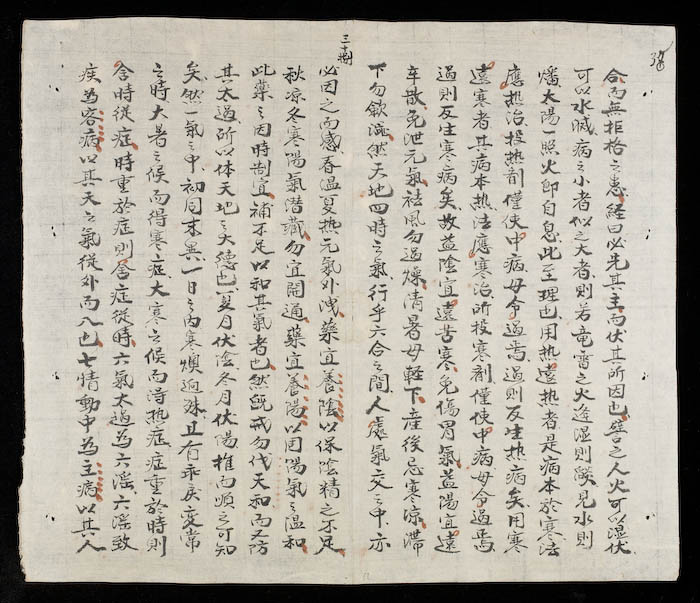 合而無拒格之患經曰必先其主而伏其所因也譬之人火可以湿伏
可以水滅病之小者似之大者則若竜雷之火逢湿則燄見水則
燔太陽一照火即自息此至理也用热遠热者是病本於寒法
應热治投热剤僅使中病毋令過焉過則反生热病矣用寒
遠寒者其病本热法應寒治所投寒剤僅使中病毋令過焉
過則反生寒病矣故益陰宜遠苦寒免傷胃氣益陽宜遠
辛散免泄元氣祛風勿過燥清暑毋軽下産後忌寒凉滞
下勿歛澁然天地四時之氣行乎六合之間人處氣交之中亦
三十捌
必因之而感春温夏热元氣外洩藥宜養陰以保陰精之不足
秋凉冬寒陽氣潜藏勿宜開通藥宜養陽以固陽氣之温和
此藥之因時制宜補不足以和其氣者也然既戒勿伐天和而又防
其太過所以体天地之大徳也夏月伏陰冬月伏陽推而順之可知
矣然一氣之中初同末異一日之内寒燠逈殊且有乖戾変常
之時大暑之候而得寒症大寒之候而得热症症重於時則
舎時從症時重於症則舎症從時六氣太過為六淫六淫致
疾為客病以其天之氣從外而入也七情動中為主病以其人